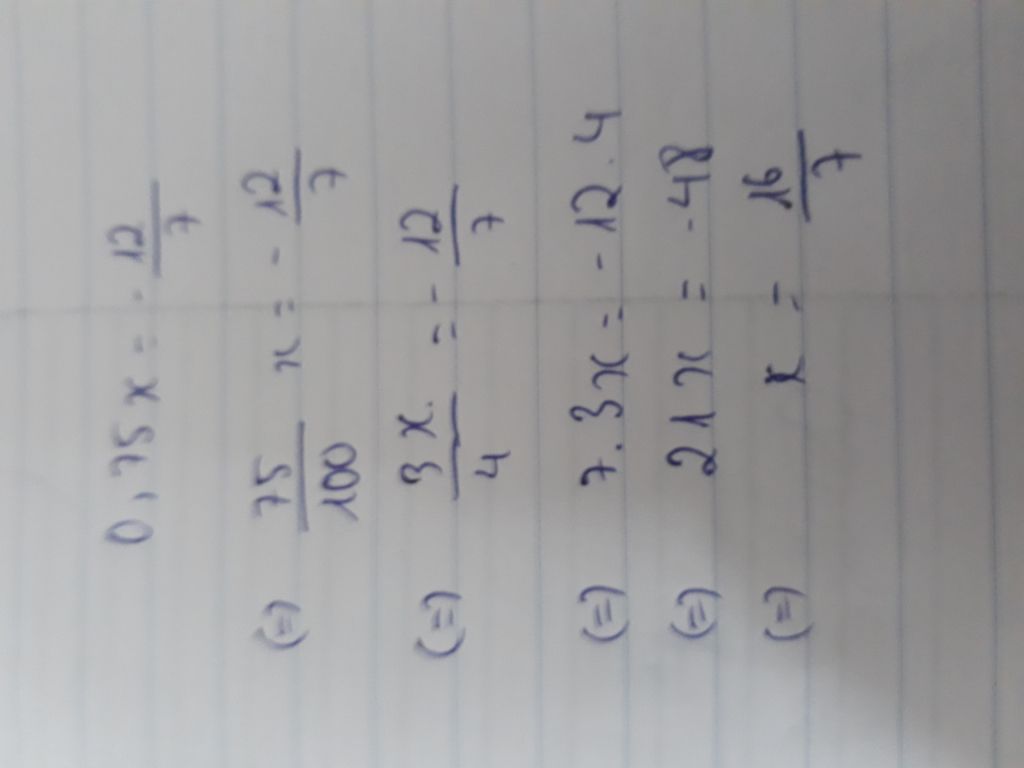 0,75x = - 12/7
(=) 75/100 x = - 12/7
(=) 3x/4 = - 12/7
(=) 7.3x = - 12.4
(=) 21x = - 48
(=) x = 16/7